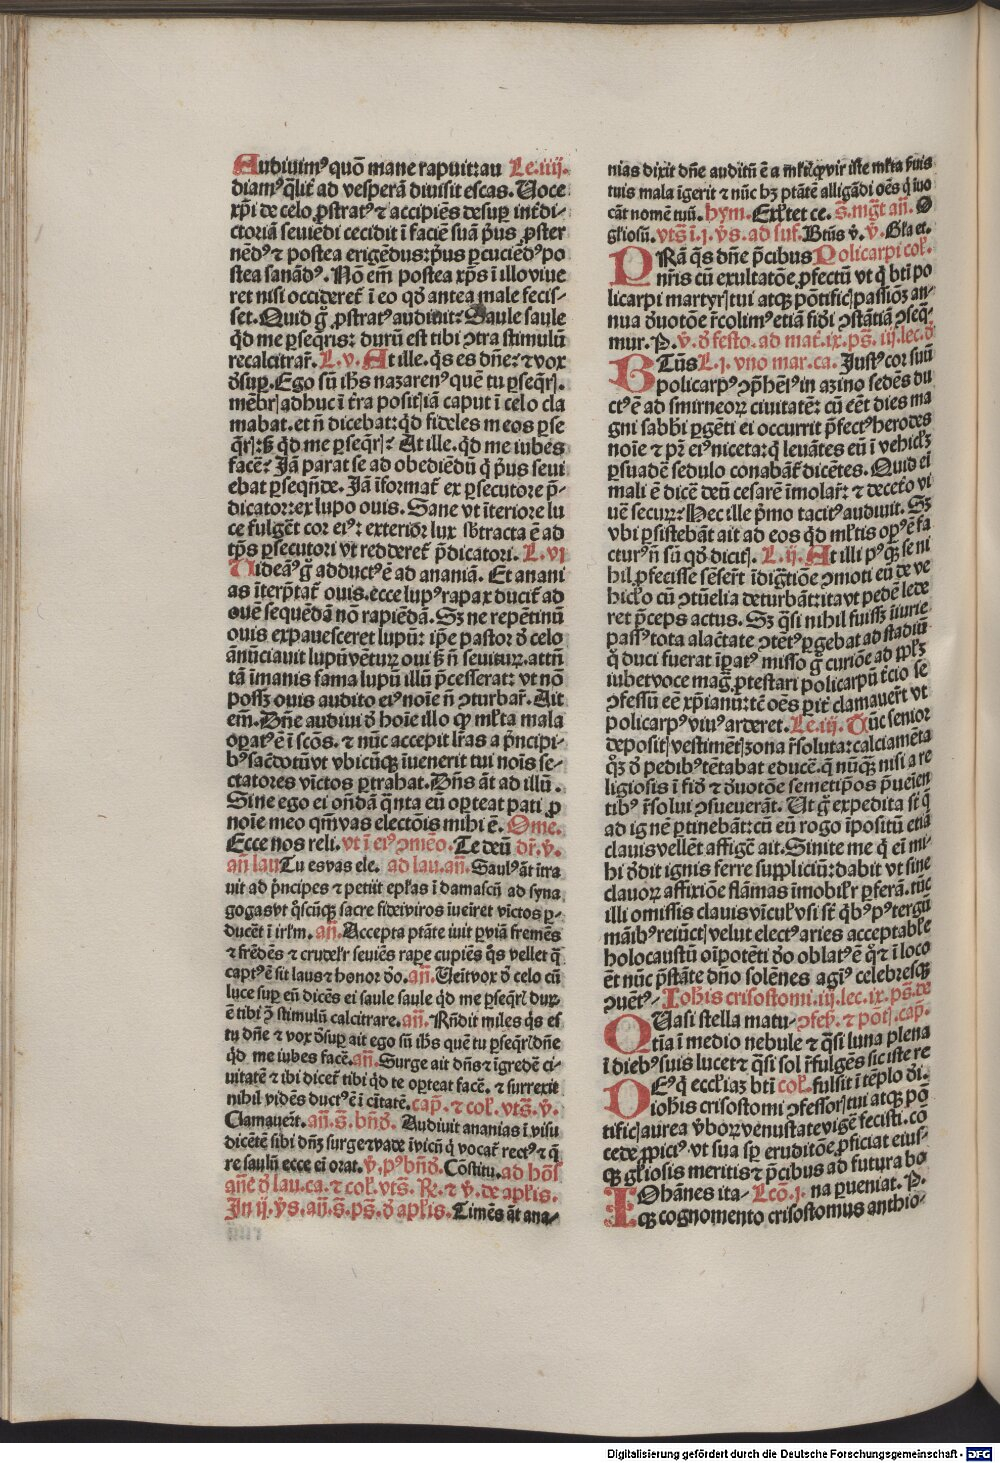 Audiuimꝰ quō mane rapuit: au Le. iiij.
diamꝰ q̄liť ad vesperā diuisit escas. Uoce
xp̄i de celo ꝓstratꝰ ⁊ accipiēs desuꝑ inťdi-
ctoriā seuiēdi cecidit ī faciē suā p̄us ꝓster
nēdꝰ ⁊ postea erigēdus: p̄us ꝑcuciēdꝰ po
stea sanādꝰ. Nō em̄ postea xp̄s ī illo viue
ret nisi occidereť ī eo qd̛ antea male fecis-
set. Quid g̊ ꝓstratꝰ audiuit: Saule saule
q̇d me ꝑseqris: durū est tibi ↄtra stimulū
recalcitrař. L. v. At ille. q̇s es dn̄e: ⁊ vox
d̛suꝑ. Ego sū ih̄s nazarenꝰ quē tu ꝑseq̄rꝭ.
mēbrꝭ adhuc ī t̄ra positꝭ iā caput ī celo cla
mabat. et n̄ dicebat: q̇d fideles meos ꝑse
q̄rꝭ: sꝫ q̇d me ꝑseq̄rꝭ? At ille. q̇d me iubes
facē? Jā parat se ad obediēdū q̇ p̄us seui
ebat ꝑseqn̄de. Jā īformať ex ꝑsecutore p̄-
dicator: ex lupo ouis. Sane vt īteriore lu
ce fulgēt cor eiꝰ: exterioꝝ lux sb̄tracta ē ad
tp̄s ꝑsecutori vt reddereť p̄dicatori. L. vi
Uideāꝰ g̊ adductꝰ ē ad ananiā. Et anani
as īterp̄tať ouis. ecce lupꝰ rapax duciť ad
ouē sequēdā nō rapiēdā. Sꝫ ne repētinū
ouis expauesceret lupū: ip̄e pastor d̛ celo
ānūciauit lupū vēturꝝ oui sꝫ n̄ seuiturꝝ. attn̄
tā īmanis fama lupū illū p̄cesserat: vt nō
possꝫ ouis audito eiꝰ noīe n̄ ↄturbař. Ait
em̄. Dn̄e audiui d̛ hoīe illo qꝫ ml̄ta mala
oꝑatꝰ ē ī scōs. ⁊ nūc accepit lr̄as a p̄ncipi-
bꝰ sac̄dotū vt vbicūqꝫ īuenerit tui noīs se-
ctatores vīctos ꝑtrahat. Dn̄s āt ad illū.
Sine ego ei on̄dā q̄nta eū oꝑteat pati ꝓ
noīe meo qm̄ vas electōis mihi ē. Ome.
Ecce nos reli. vt ī eiꝰ ↄmēo. Te deū dř. v̛.
an̄ lau Tu es vas ele. ad lau. an̄. Saulꝰ āt ītra
uit ad p̄ncipes ⁊ petiit epl̄as ī damascū ad syna
gogas vt q̊scūqꝫ sacre fidei viros īueiret vīctos ꝑ-
ducēt ī irl̄m. an̄. Accepta ptāte iuit ꝑ viā fremēs
⁊ frēdēs ⁊ crudel̄r seuiēs rape cupiēs q̊s vellet q̇
captꝰ ē sit laus ⁊ honor d̄o. an̄. Ueīt vox d̛ celo cū
luce suꝑ eū dicēs ei saule saule q̇d me ꝑseqrꝭ durꝝ
ē tibi ↄ̄ stimulū calcitrare. an̄. Rn̄dit miles q̇s es
tu dn̄e ⁊ vox d̛suꝑ ait ego sū ih̄s quē tu ꝑseqrꝭ dn̄e
q̇d me iubes facē. an̄. Surge ait dn̄s ⁊ īgredē ci-
uitatē ⁊ ibi diceť tibi q̇d te oꝑteat facē. ⁊ surrexit
nihil vidēs ductꝰ ē ī ciuitatē. cap̄. ⁊ col̄. vts̄. v̛.
Clamauer̄t. an̄. s̄. bn̄d̛. Audiuit ananias ī visu
dicētē sibi dn̄m surge ⁊ vade ī vicū q̇ vocať rectꝰ ⁊ q̄
re saulū ecce ei orat. v̛. pꝰ bn̄d̛. Cōstitu. ad ho̅s
an̄e d̛ lau. ca. ⁊ col̄. vts̄. R̛. ⁊ v̛. de apl̄is.
Jn ij. v̛s. an̄. s̄. ps̄. d̛ apl̄is. Timēs āt ana-
nias dixit dn̄e auditū ē a ml̄tꝭ qꝫ vir iste ml̄ta ſuis
tuis mala īgerit ⁊ nūc hꝫ ptātē alligādi oēs q̇ īuo
cāt nomē tuū. hym. Exl̄tet ce. s̄. mgt̄ an̄. O
gl̄iosū. vts̄ ī. j. v̛s. ad suf. Btūs v̛. v̛. Gl̄a et.
PRā q̄s dn̄e p̄cibus Policarpi col̄.
nr̄is cū exultatōe ꝓfectū vt q̇ bt̄i po
licarpi martyrꝭ tui atqꝫ pōtificꝭ passiōꝫ an-
nua d̛uotōe r̄colimꝰ etiā fid̛i ↄstātiā ↄseq̄-
mur. P. v̛. d̛ festo. ad mat̄. ix. ps̄. iij. lec. d̛
BTūs L. j. vno mar. ca. Justꝰ cor suū
policarpꝰ ↄp̄hēsꝰ in azino sedēs du
ctꝰ ē ad smirneoꝝ ciuitatē: cū eēt dies ma
gni sabb̄i ꝑgēti ei occurrit p̄fectꝰ herodes
noīe ⁊ pr̄ eiꝰ niceta: q̇ leuātes eū ī vehicl̄ꝫ
ꝑsuadē sedulo conabāť dicētes. Quid ei
mali ē dicē deū cesarē īmolař: ⁊ decet̄o vi
uē securꝝ: Hec ille p̄mo tacitꝰ audiuit. Sꝫ
vbi ꝑsistebāt ait ad eos q̇d ml̄tis opꝰ ē fa
cturꝰ n̄ sū qd̛ dicitꝭ. L. ij. At illi pꝰqꝫ se ni
hil ꝓfecisse sēser̄t īdigtiōe ↄmoti eū de ve
hicl̄o cū ↄtūelia deturbāt: ita vt pedē lede
ret p̄ceps actus. Sꝫ q̄si nihil fuissꝫ iiurie
passꝰ tota alac̄tate ↄtētꝰ ꝑgebat ad stadiū
q̇ duci fuerat īꝑatꝰ misso g̊ curiōe ad ppl̄ꝫ
iubet voce mag̊ ꝓtestari policarpū t̄cio se
ↄfessū eē xp̄ianū: tē oēs pit̄ clamauer̄t vt
policarpꝰ viuꝰ arderet. Le. iij. Tūc senior
depositꝭ vestimētꝭ zona r̄soluta: calciamēta
q̊ꝫ d̛ pedibꝰ tētabat educē. q̇ nūq̄ꝫ nisi a re
ligiosis ī fid̛ ⁊ d̛uotōe semetip̄os p̄ueiēn
tibꝰ r̄solui ↄsueuerāt. Ut g̊ expedita st̄ q̄
ad ignē ꝑtinebāt: cū eū rogo īpositū etiā
clauis vellēt affigē ait. Sinite me q̇ ei mi-
hi d̛dit ignis ferre suppliciū: dabit vt sine
clauoꝝ affixiōe flāmas īmobil̄r ꝑferā. tūc
illi omissis clauis vīcul̄ vsi st̄ q̇bꝰ pꝰ tergū
māibꝰ reiūctꝭ velut electꝰ aries acceptabl̄e
holocaustū oīpotēti d̄o oblatꝰ ē q̇ ⁊ ī loco
ēt nūc p̄stāte dn̄o solēnes agiꝰ celebresqꝫ
ↄuētꝰ. Johīs crisostomi. iij. lec. ix. ps̄. de
QUasi stella matu- ↄfeb̄. ⁊ pōt. cap̄.
tīa ī medio nebule ⁊ q̄si luna plena
ī diebꝰ suis lucet ⁊ q̄si sol r̄fulgēs sic iste re
DEꝰ q̇ eccl̄iaꝫ bt̄i col̄. fulsit ī tēplo d̛i.
iohīs crisostomi ↄfessorꝭ tui atqꝫ pō
tificꝭ aurea v̛borꝝ venustate vigē fecisti. cō
cede ꝓpiciꝰ vt sua sꝑ eruditōe ꝓficiat eius-
qꝫ gl̄iosis meritis ⁊ p̄cibus ad futura bo
JOhānes ita- Lcō. j. na ꝑueniat. P.
qꝫ cognomento crisostomus anthio-
Digitalisierung gefördert durch die Deutsche Forschungsgemeinschaft - DFG